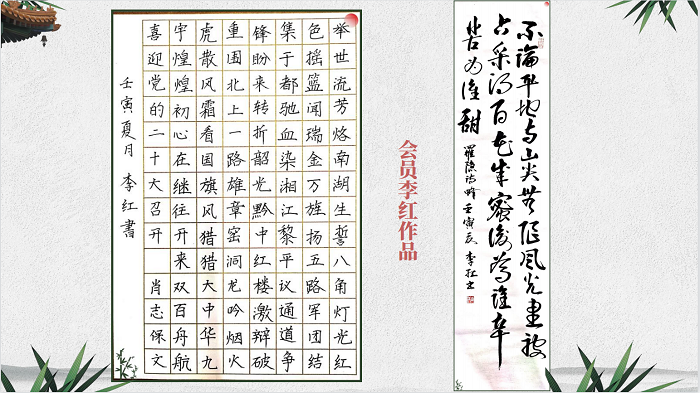 举世流芳烙南湖生誓八角灯光红
色摇篮闻瑞金万旌扬五路军团结
集于都驰血染湘江黎平议通道争
锋盼来转折韶光黔中红楼激辩破
重围北上一路雄章窑洞龙吟烟火
虎散风霜看国旗风猎猎大中华九
宇煌煌初心在继往开来双百舟航
喜迎党的二十大召开 肖志保文
壬寅夏月 李红書
会员李红作品
不論平地与山尖無限风光盡被
占采得百花成蜜後為誰辛
苦为谁甜
羅隐诗蜂壬寅夏李红书